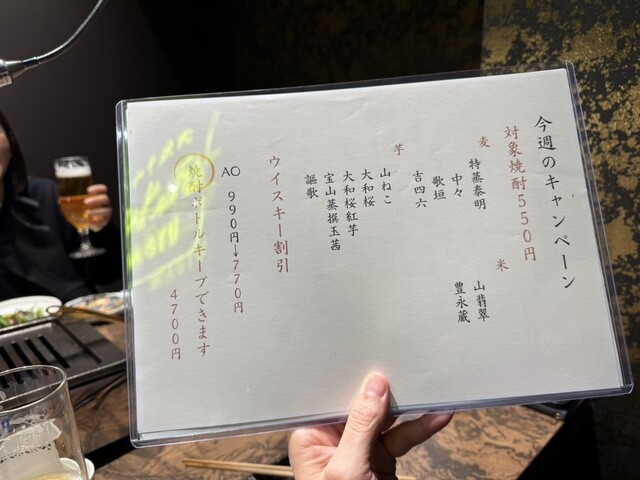 今週のキャンペーン
対象焼酎550円
麦
特蒸泰明
中々
歌垣
吉四六
米
山翡翠
豊永蔵
芋
山ねこ
大和桜
大和桜紅芋
宝山蒸撰玉茜
謳歌
ウイスキー割引
AO 990円→770円
焼酎ボトルキープできます
4700円